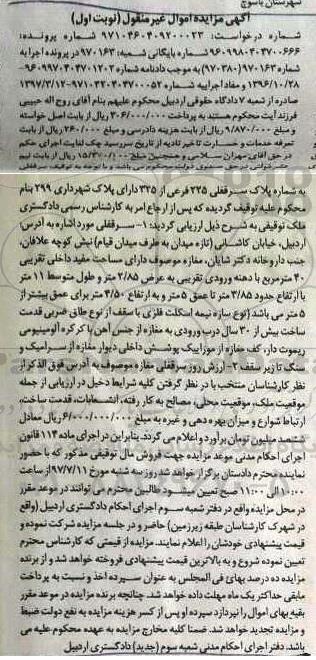 شهرستان یاسوج
آگهی مزایده اموال غیر منقول (نوبت اول)
شماره درخواست: ۹۷۱۰۴۶۰۴۰۹۲۰۰۰۲۳ شماره پرونده:
۹۶۰۹۹۸۰۴۰۴۷۰۰۶۶۶ شماره بایگانی شعبه: ۹۷۰۱۶۳ در پرونده اجرا به
شماره ۹۷۰۱۶۳ (۹۷۰۳۸۰) به موجب دادنامه شماره ۹۶۰۹۹۷۰۴۰۴۷۰۱۲۰۲
۱۳۹۶/۱۰/۲۸ و مفاد اجراییه شماره ۹۷۱۰۴۲۰۴۰۴۷۰۰۰۵۲ ۱۳۹۷/۳/۱۲
صادره از شعبه ۷ دادگاه حقوقی اردبیل محکوم علیهم بنام آقای روح اله حبیبی
فرزند آیت محکوم هستند به پرداخت ۳۰۶/۰۰۰/۰۰۰ ریال از بابت خواسته
و مبلغ ۹/۸۷۰/۰۰۰ ریال از بابت هزینه دادرسی و مبلغ ۲۶۰/۰۰۰ ریال از بابت
تعرفه خدمات و خسارت تاخیر تادیه از تاریخ سررسید چک لغایت اجرای حکم
در حق آقای مهران سلامی و همچنین مبلغ ۱۵/۳۰۰/۱۰۰ ریال از بابت نیم
به شماره پلاک سرقفلی ۲۲۵ فرعی از ۳۲۵ دارای پلاک شهرداری ۲۹۹ بنام
محکوم علیه توقیف گردیده که پس از ارجاع امر به کارشناس رسمی دادگستری
ملک توقیفی به شرح ذیل ارزیابی گردید: ۱- سرقفلی مورد اشاره به آدرس:
اردبیل، خیابان کاشانی (تازه میدان به طرف میدان قیام) نبش کوچه علافان،
جنب داروخانه دکتر شایان، مغازه موصوف دارای مساحت مفید داخلی تقریبی
۴۰ مترمربع با دهنه ورودی تقریبی به عرض ۲/۸۵ متر و طول متوسط ۱۱ متر
با ارتفاع حدود ۳/۸۵ متر تا عمق ۵ متر و به ارتفاع ۴/۵۰ متر برای عمق بیشتر از
۵ متر می باشد (نوع سازه نیمه اسکلت فلزی با سقف از نوع طاق ضربی قدمت
ساخت بیش از ۳۰ سال درب ورودی به مغازه از جنس آهن با کرکره آلومینیومی
ریموت دار، کف مغازه از موزاییک پوشش داخلی دیوار مغازه از سرامیک و
سنگ تا زیر سقف ۲- ارزش روز سرقفلی مغازه موصوف به آدرس فوق الذکر از
نظر کارشناسان منتخب با در نظر گرفتن کلیه شرایط دخیل در ارزیابی از جمله
موقعیت ملک، موقعیت محلی، مصالح به کار رفته، انشعابات، قدمت ساخت،
ارتباط شوارع و میزان بهره دهی و غیره به مبلغ ۶/۰۰۰/۰۰۰/۰۰۰ ریال معادل
ششصد میلیون تومان برآورد و اعلام می گردد. بنابراین در اجرای ماده ۱۱۴ قانون
اجرای احکام مدنی موعد مزایده جهت فروش مال توقیفی مذکور که با حضور
نماینده محترم دادستان برگزار خواهد شد روز سه شنبه مورخ ۹۷/۷/۱۱ از ساعت
۱۰:۰۰ الی ۱۱:۰۰ صبح تعیین میشود طالبین محترم می توانند در موعد مقرر
در محل مزایده واقع در دفتر شعبه سوم اجرای احکام دادگستری اردبیل (واقع
در شهرک کارشناسان طبقه زیرزمین) حاضر و در جلسه مزایده شرکت نموده و
قیمت پیشنهادی خودشان را اعلام نمایند. مزایده از قیمتی که کارشناس محترم
تعیین نموده شروع و به بالاترین قیمت پیشنهادی فروخته خواهد شد و از برنده
مزایده ده درصد بهای فی المجلس به عنوان سپرده اخذ و نسبت به پرداخت
مابقی حداکثر یک ماه مهلت داده خواهد شد. چنانچه برنده مزایده در موعد مقرر
بقیه بهای اموال را نپردازد سپرده او پس از کسر هزینه مزایده به نفع دولت ضبط
و مزایده تجدید خواهد شد. ضمنا کلیه مخارج مزایده به عهده محکوم علیه می
باشد. دفتر اجرای احکام مدنی شعبه سوم (جدید) دادگستری اردبیل